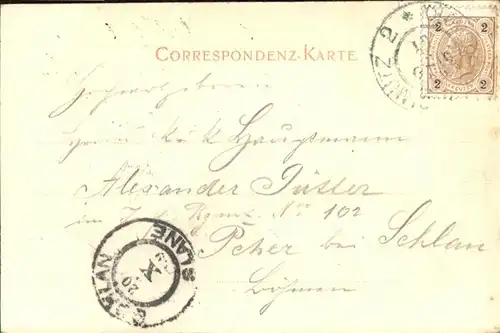 CORRESPONDENZ-KARTE
2 2
2 2
Hochwohlgeboren
Herrn k. u. k. Hauptmann
Alexander Tüller
im Rgmt. No 102
Pcher bei Schlan
Böhmen
SCHLAN
SLANÉ
X
20
2 *